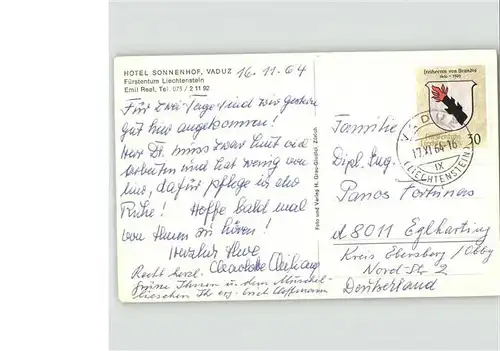 HOTEL SONNENHOF, VADUZ 16.11.64
Fürstentum Liechtenstein
Emil Real, Tel. 075 / 2 11 92
Für zwei Tage sind wir gestern
gut hier angekommen!
Herr Dr. muss zwar laut und
arbeiten und hat wenig von
hier, dafür pflege ich der
Ruhe! Hoffe bald mal
von Ihnen zu hören!
Herzlichst Ihre
Recht herzl.
Grüße Ihnen u. dem
Ihr erg.
Foto und Verlag H. Gross, Zürich
Freiherren von Brandis
30
VADUZ
17.XI.64-16
IX
(LIECHTENSTEIN)
Familie
Dipl. Ing.
Panos Fortunas
d 8011 Eglharting
Kreis Ebersberg /Obby
Nord-Str 2
Deutschland